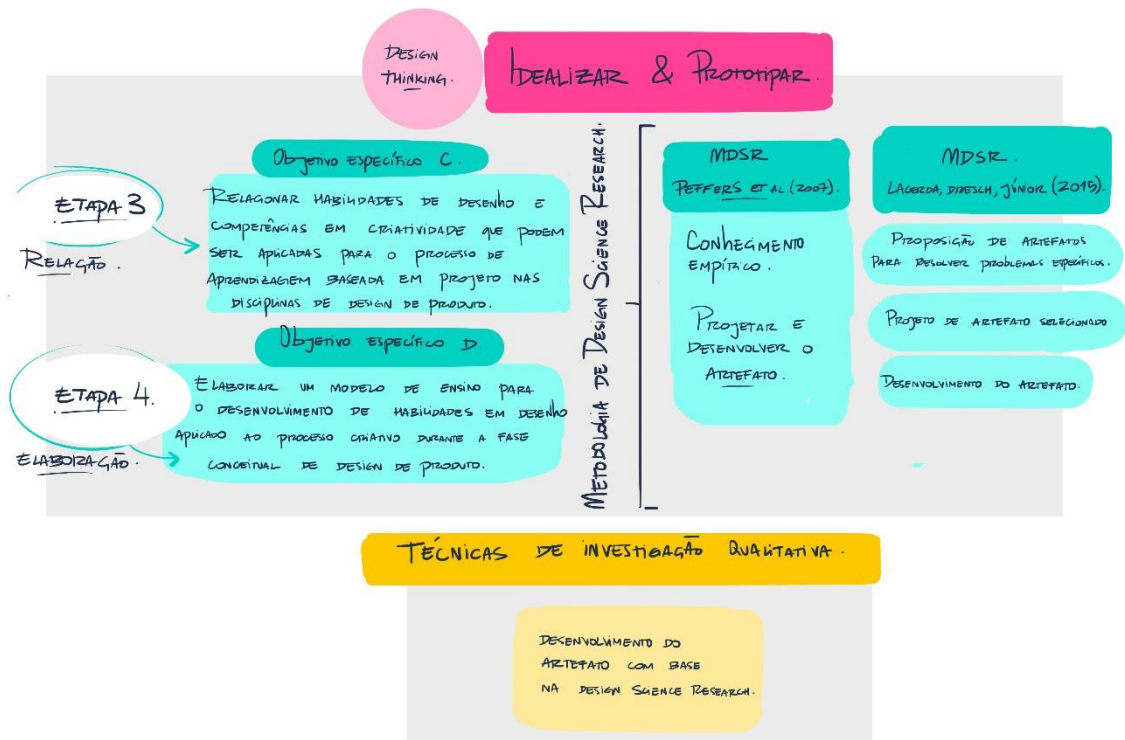 DESIGN
THINKING.
IDEALIZAR & PROTOTIPAR.
ETAPA 3
RELAÇÃO.
Objetivo específico C.
RELACIONAR HABILIDADES DE DESENHO E
COMPETÊNCIAS EM CRIATIVIDADE QUE PODEM
SER APLICADAS PARA O PROCESSO DE
APRENDIZAGEM BASEADA EM PROJETO NAS
DISCIPLINAS DE DESIGN DE PRODUTO.
ETAPA 4.
ELABORAÇÃO.
Objetivo específico D
ELABORAR UM MODELO DE ENSINO PARA
O DESENVOLVIMENTO DE HABILIDADES EM DESENHO
APLICADO AO PROCESSO CRIATIVO DURANTE A FASE
CONCEITUAL DE DESIGN DE PRODUTO.
METODOLOGIA DE DESIGN SCIENCE RESEARCH.
MDSR
PEFFERS ET AL.(2007).
CONHECIMENTO
EMPÍRICO.
PROJETAR E
DESENVOLVER O
ARTEFATO.
MDSR.
LACERDA, DRESCH, JÚNIOR (2015).
PROPOSIÇÃO DE ARTEFATOS
PARA RESOLVER PROBLEMAS ESPECÍFICOS.
PROJETO DE ARTEFATO SELECIONADO
DESENVOLVIMENTO DO ARTEFATO.
TÉCNICAS DE INVESTIGAÇÃO QUALITATIVA.
DESENVOLVIMENTO DO
ARTEFATO COM BASE
NA DESIGN SCIENCE RESEARCH.